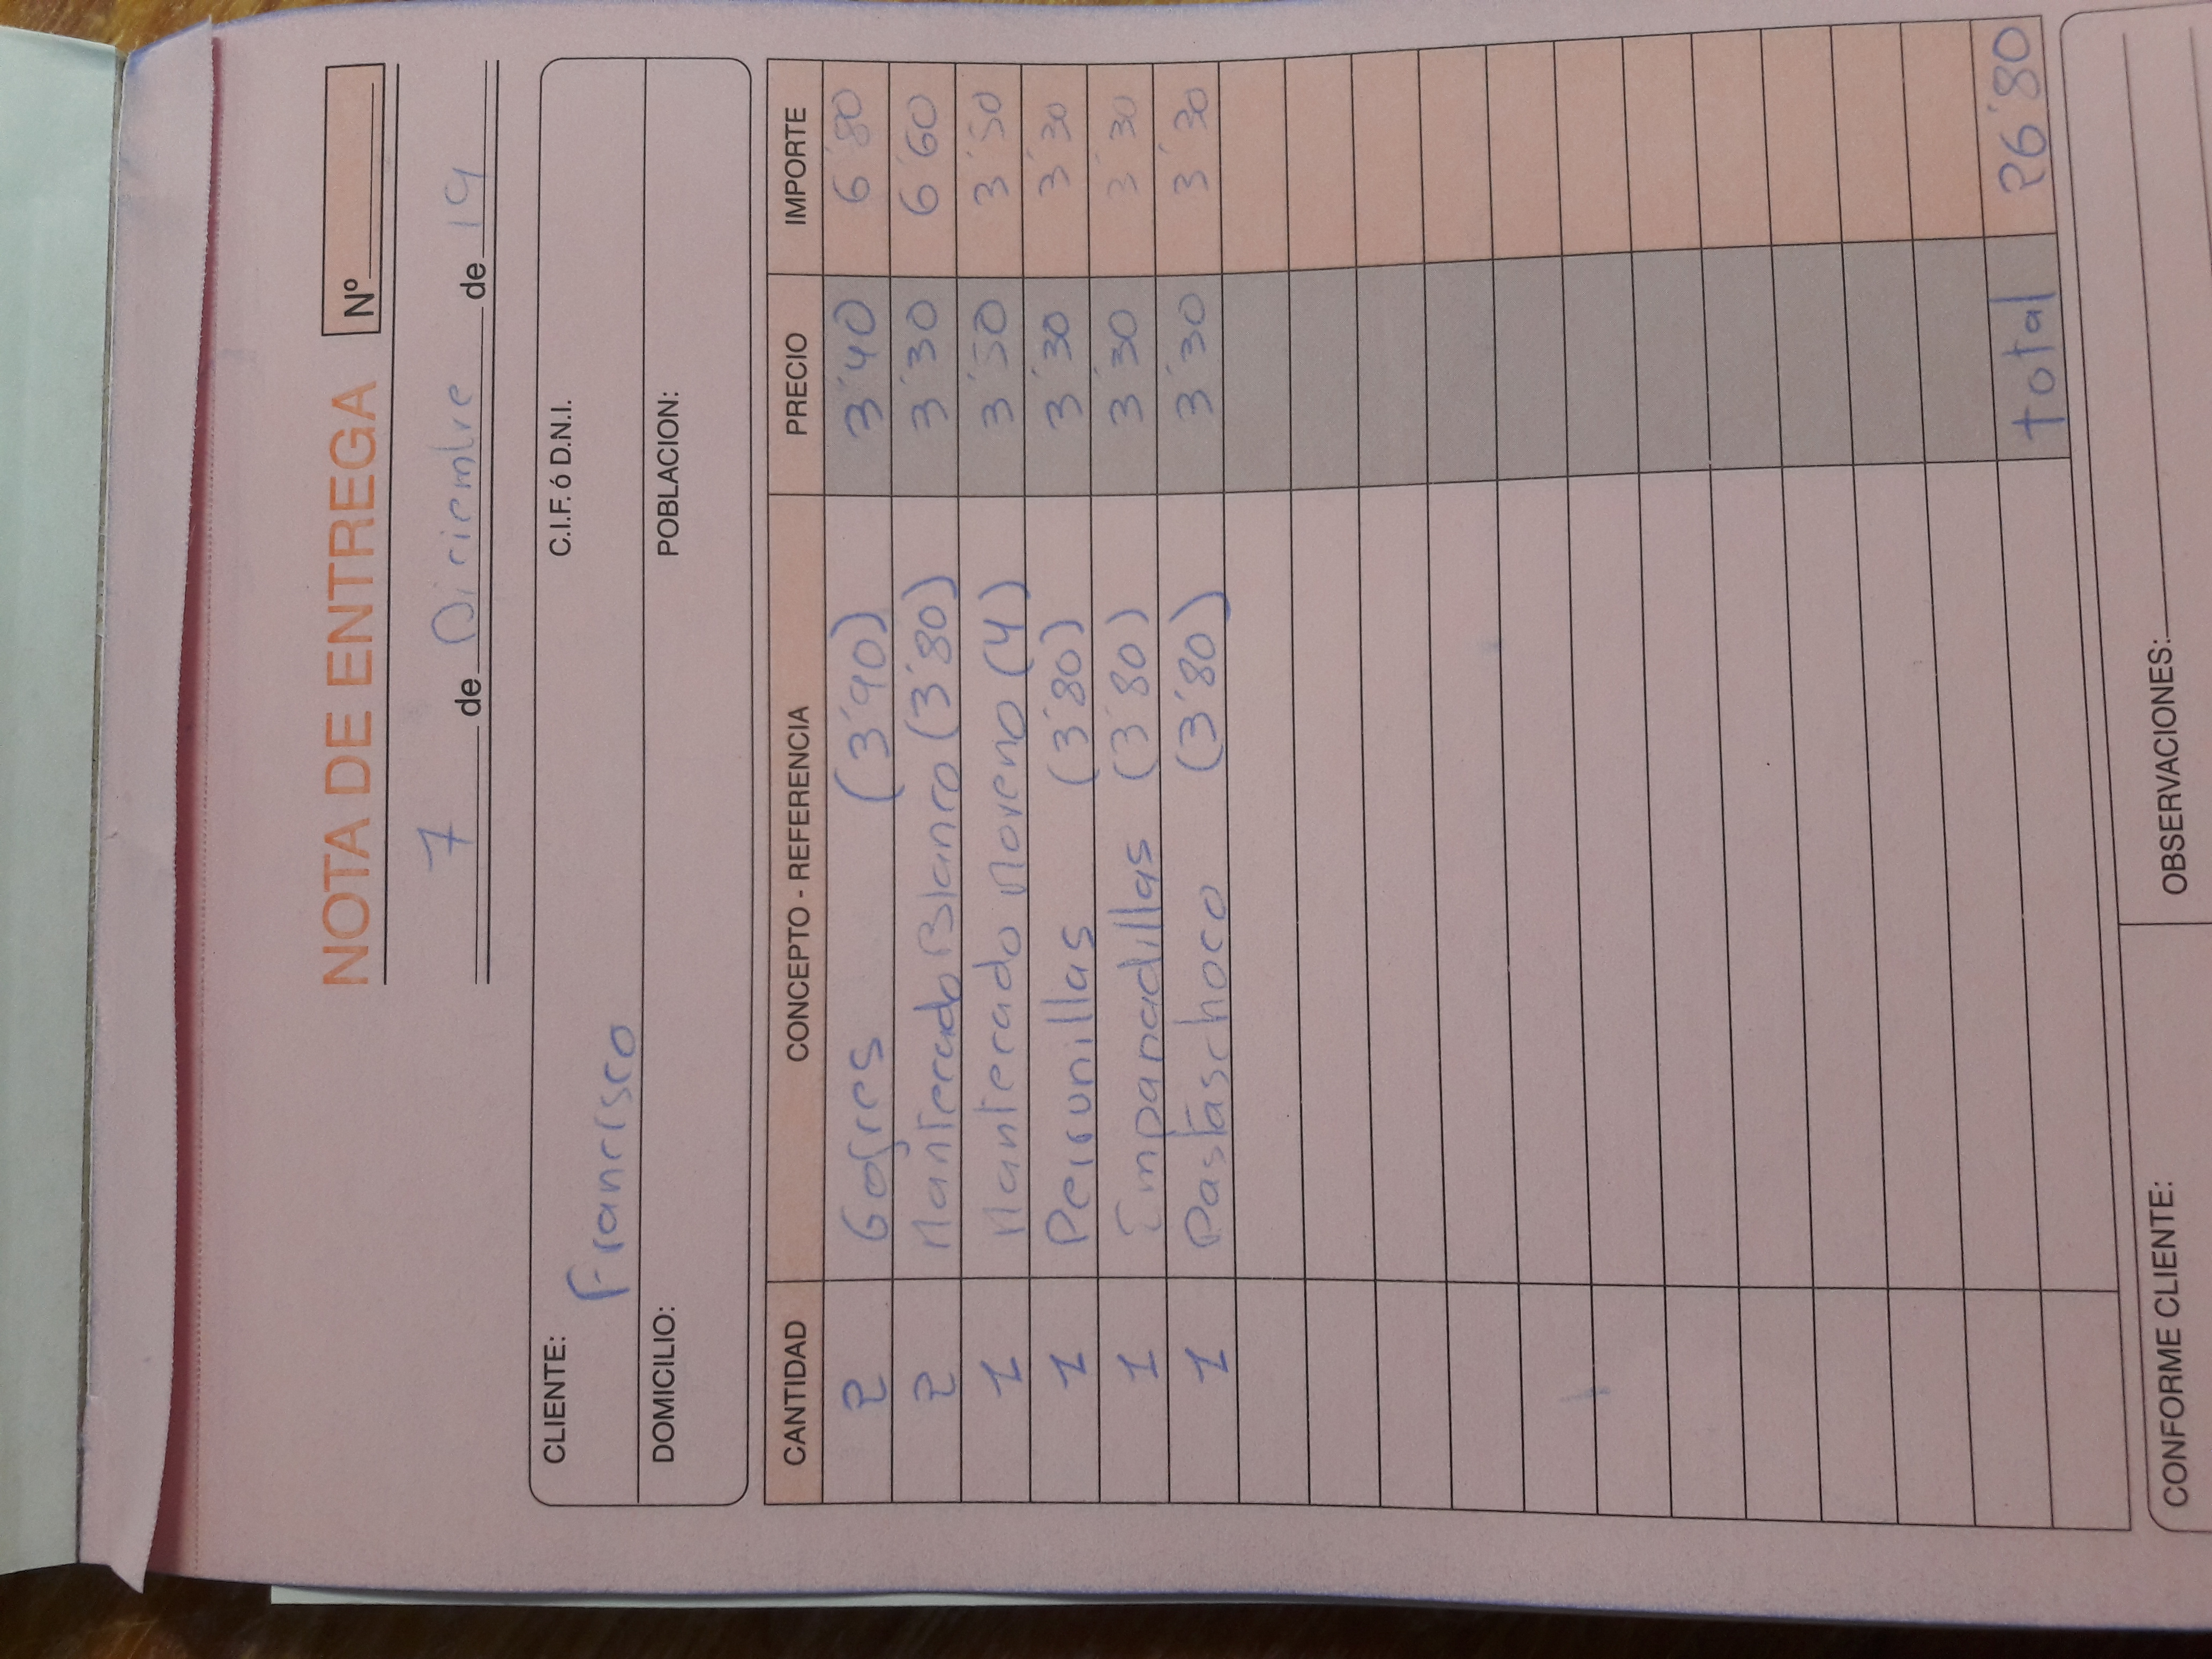 NOTA DE ENTREGA
Nº
7 de Diciembre de 19
CLIENTE: C.I.F. ó D.N.I.
Francisco
DOMICILIO: POBLACION:
CANTIDAD CONCEPTO - REFERENCIA PRECIO IMPORTE
2 Gofres (3'90) 3'40 6'80
2 Mantecado Blanco (3'80) 3'30 6'60
1 Mantecado Moreno (4) 3'50 3'50
1 Perrunillas (3'80) 3'30 3'30
1 Empanadillas (3'80) 3'30 3'30
1 Pastas choco (3'80) 3'30 3'30
total 26'80
CONFORME CLIENTE: OBSERVACIONES: